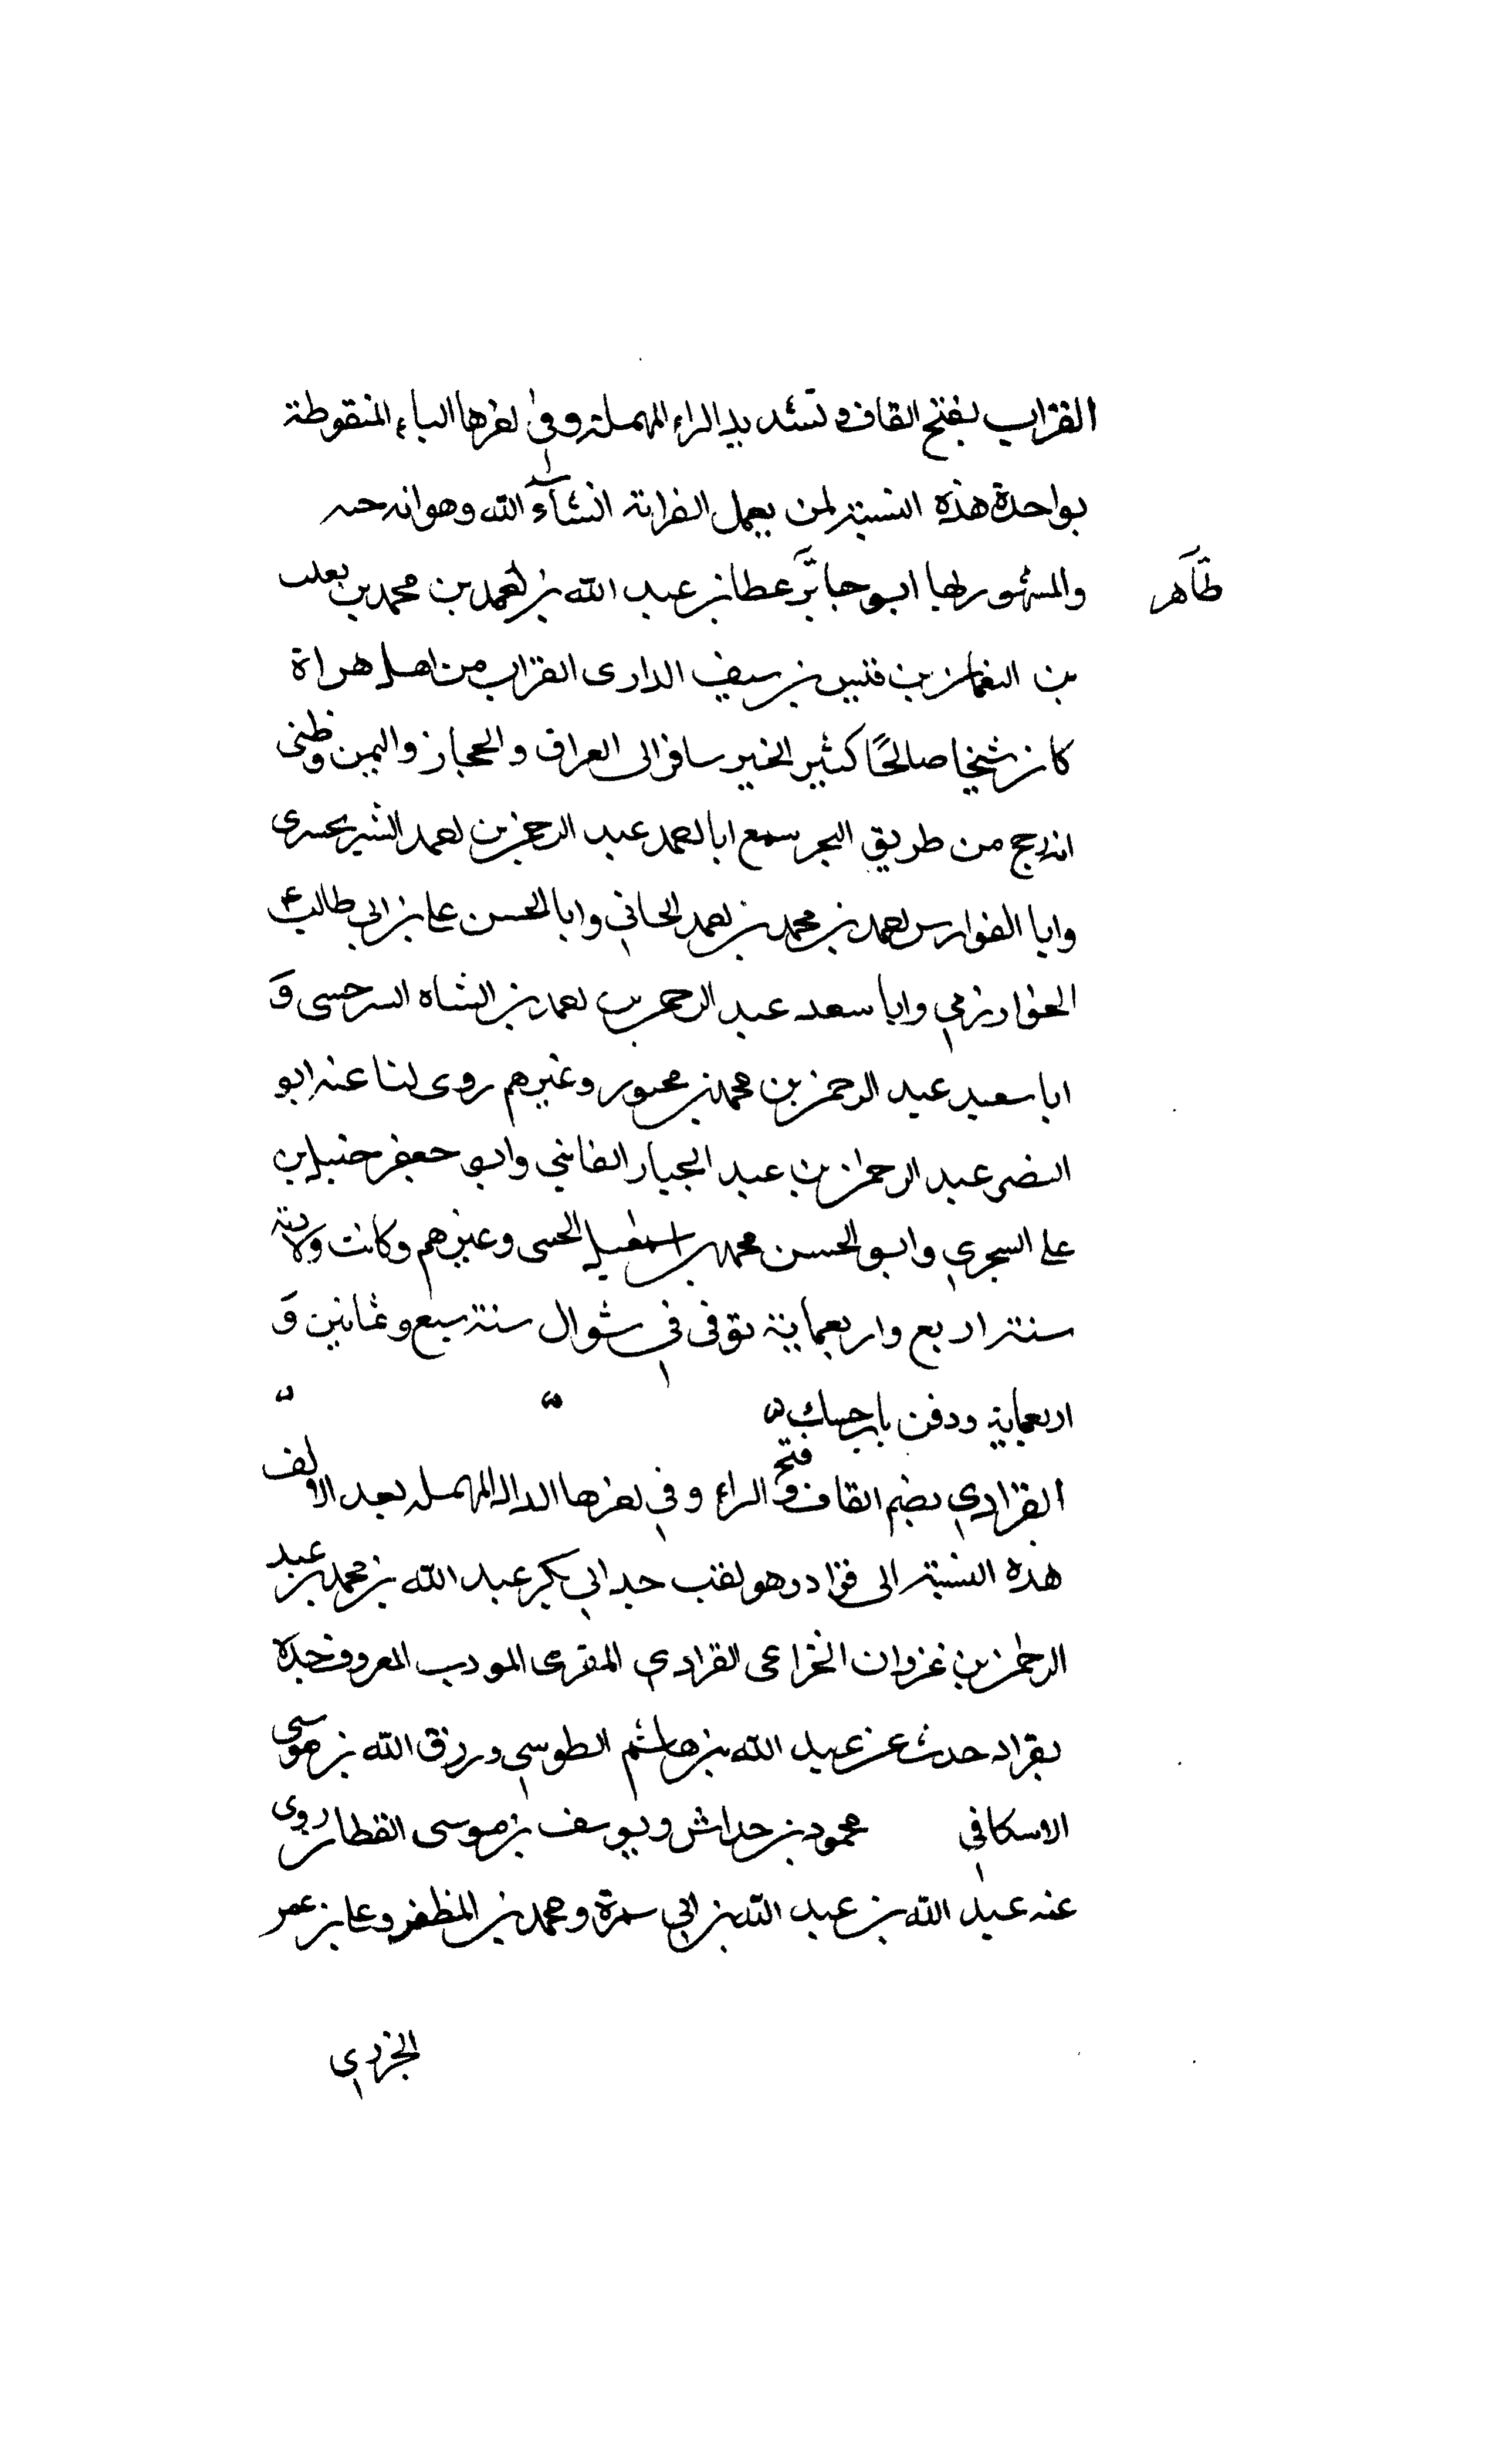 القراب بفتح القاف وتشديد الراء المهملة وفي اخرها الباء المنقوطة
بواحدة هذه النسبة لمن يعمل القرابة انشآء الله وهوانه
طاهر
والمشهور بها ابو عطا بن عبد الله بن احمد بن محمد بن ثعلب
بن النعمان بن قيس بن سيف الدارى القراب من اهل هراة
كان شيخا صالحًا كثير الخير سافر الى العراق والحجاز واليمن وظنى
انه حج من طريق البحر سمع ابا احمد عبد الرحمن بن احمد الشيرنحسرى
وابا الفوارس احمد بن محمد بن احمد وابا الحسن على بن ابي طالب
الخوارزمي وابا سعد عبد الرحمن بن احمد بن الشاه السرخسى و
ابا سعيد عبد الرحمن بن محمد بن محبور وغيرهم روى لنا عنه ابو
النضر عبد الرحمن بن عبد الجبار الفامي وابو جعفر حنبل بن
على السجزي وابو الحسن محمد بن اسمعيل الحسى وغيرهم وكانت ولادته
سنة اربع واربعماية توفى في شوال سنة سبع وثمانين و
اربعماية ودفن
القرادي بضم القاف وفتح الراء وفي اخرها الدال المهمله بعد الالف
هذه النسبة الى قراد وهو لقب جد ابي بكر عبد الله بن محمد بن عبد
الرحمن بن غزوان الخزاعى القرادي المقرى المودب المعروف جده
بقراد حدث عن عبد الله بن هاشم الطوسي ورزق الله بن موسى
الاسكافي محمود بن خداش ويوسف بن موسى القطان روى
عنه عبد الله بن عبد الله بن ابي سمرة ومحمد بن المظفر وعلى بن عمر